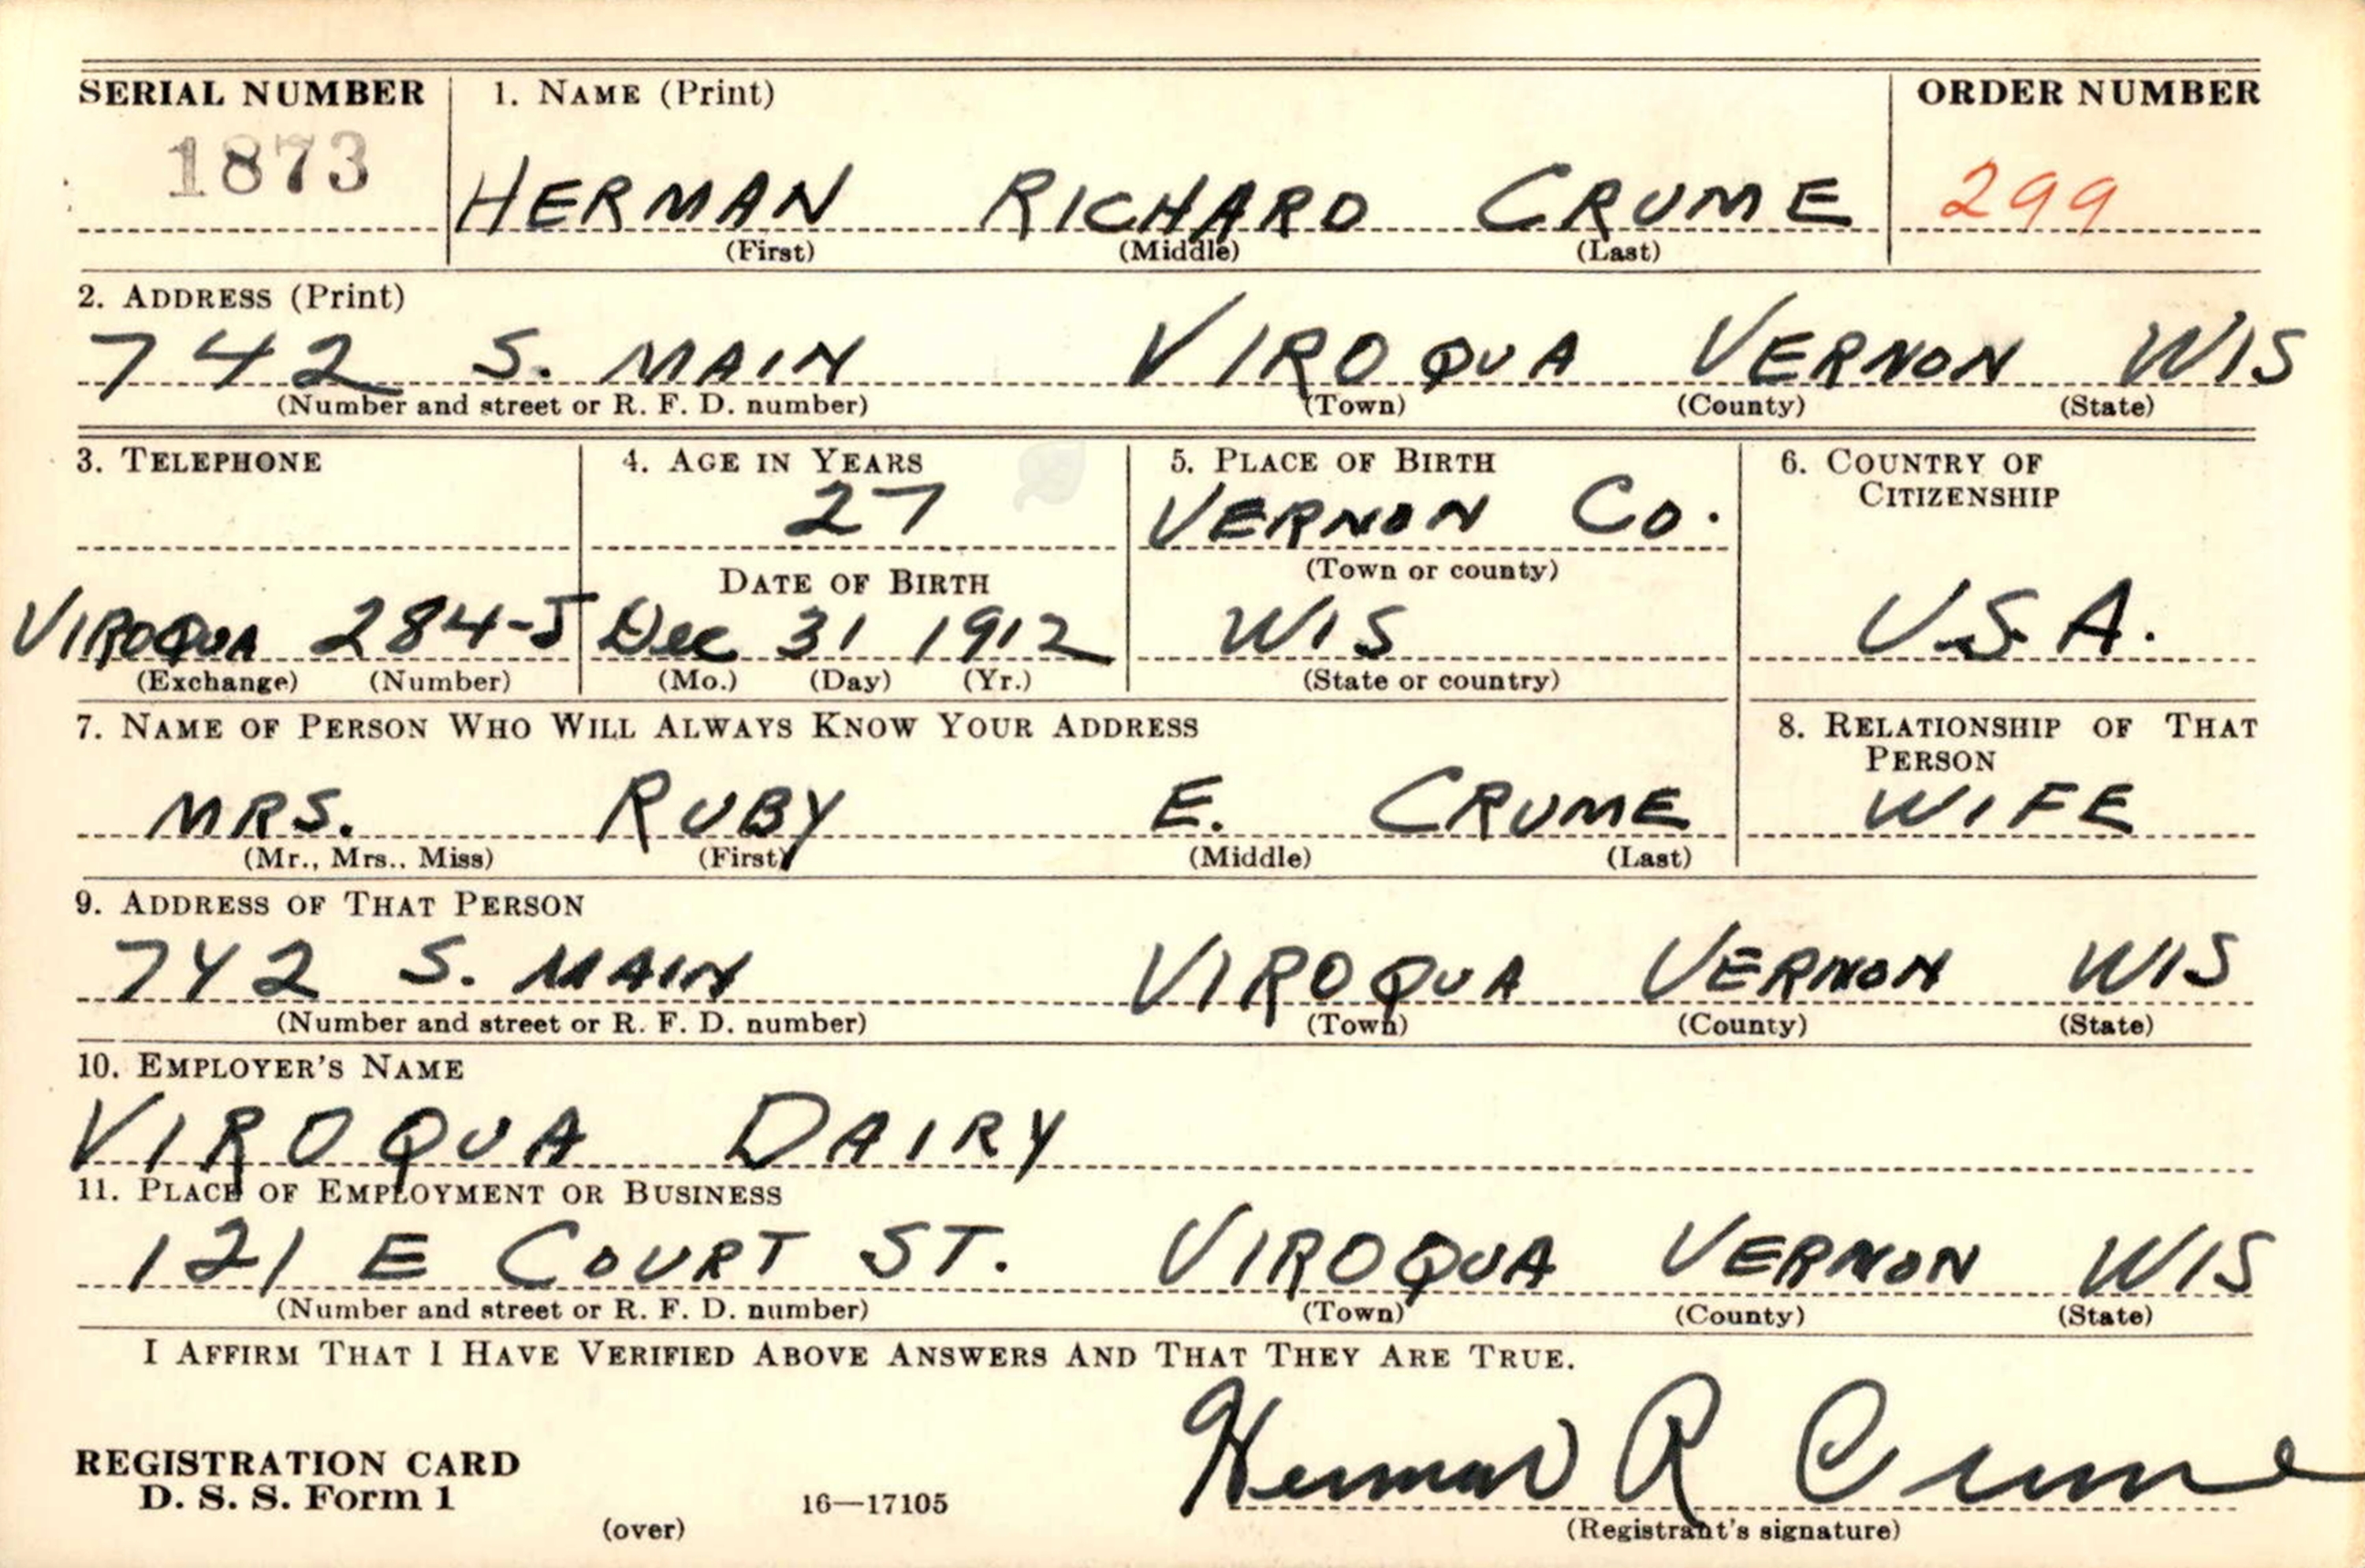 SERIAL NUMBER 1. NAME (Print) ORDER NUMBER
1873 HERMAN RICHARD CRUME 299
(First) (Middle) (Last)
2. ADDRESS (Print)
742 S. MAIN VIROQUA VERNON WIS
(Number and street or R. F. D. number) (Town) (County) (State)
3. TELEPHONE 4. AGE IN YEARS 5. PLACE OF BIRTH 6. COUNTRY OF
CITIZENSHIP
27 VERNON CO.
(Town or county)
DATE OF BIRTH
VIROQUA 284-J Dec 31 1912 WIS U.S.A.
(Exchange) (Number) (Mo.) (Day) (Yr.) (State or country)
7. NAME OF PERSON WHO WILL ALWAYS KNOW YOUR ADDRESS 8. RELATIONSHIP OF THAT
PERSON
MRS. RUBY E. CRUME WIFE
(Mr., Mrs., Miss) (First) (Middle) (Last)
9. ADDRESS OF THAT PERSON
742 S. MAIN VIROQUA VERNON WIS
(Number and street or R. F. D. number) (Town) (County) (State)
10. EMPLOYER'S NAME
VIROQUA DAIRY
11. PLACE OF EMPLOYMENT OR BUSINESS
121 E COURT ST. VIROQUA VERNON WIS
(Number and street or R. F. D. number) (Town) (County) (State)
I AFFIRM THAT I HAVE VERIFIED ABOVE ANSWERS AND THAT THEY ARE TRUE.
Herman R Crume
REGISTRATION CARD
D. S. S. Form 1 16—17105
(over) (Registrant's signature)